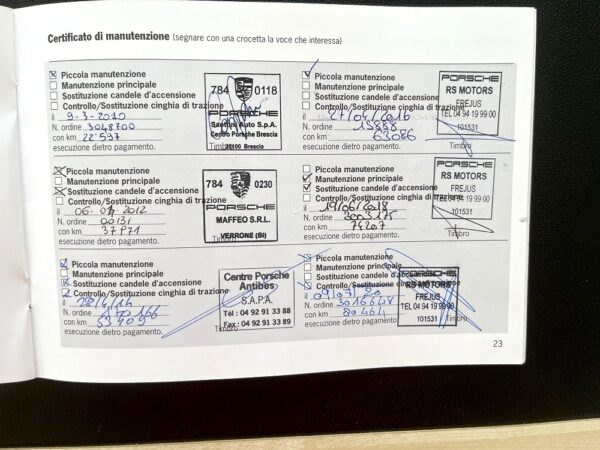 Certificato di manutenzione (segnare con una crocetta la voce che interessa)
Piccola manutenzione
Manutenzione principale
Sostituzione candele d'accensione
Controllo/Sostituzione cinghia di trazione
il 9-3-2010
N. ordine 3048700
con km 22'597
esecuzione dietro pagamento.
784 0118
PORSCHE
Saottini Auto S.p.A.
Centro Porsche Brescia
25100 Brescia
Timbro
Piccola manutenzione
Manutenzione principale
Sostituzione candele d'accensione
Controllo/Sostituzione cinghia di trazione
il 06-07-2012
N. ordine 00131
con km 37971
esecuzione dietro pagamento.
784 0230
PORSCHE
MAFFEO S.R.L.
VERRONE (BI)
Timbro
Piccola manutenzione
Manutenzione principale
Sostituzione candele d'accensione
Controllo/Sostituzione cinghia di trazione
il 28/4/14
N. ordine 170166
con km 53409
esecuzione dietro pagamento.
Centre Porsche
Antibes
S.A.P.A.
Tél : 04 92 91 33 88
Fax : 04 92 91 33 89
Timbro
Piccola manutenzione
Manutenzione principale
Sostituzione candele d'accensione
Controllo/Sostituzione cinghia di trazione
il 27/04/2016
N. ordine 15888
con km 63086
esecuzione dietro pagamento.
PORSCHE
RS MOTORS
FREJUS
TEL 04 94 19 99 00
101531
Timbro
Piccola manutenzione
Manutenzione principale
Sostituzione candele d'accensione
Controllo/Sostituzione cinghia di trazione
il 19/06/2018
N. ordine 3003175
con km 74207
esecuzione dietro pagamento.
PORSCHE
RS MOTORS
FREJUS
TEL 04 94 19 99 00
101531
Timbro
Piccola manutenzione
Manutenzione principale
Sostituzione candele d'accensione
Controllo/Sostituzione cinghia di trazione
il
N. ordine
con km 80464
esecuzione dietro pagamento.
PORSCHE
RS MOTORS
FREJUS
TEL 04 94 19 99 00
101531
Timbro
23